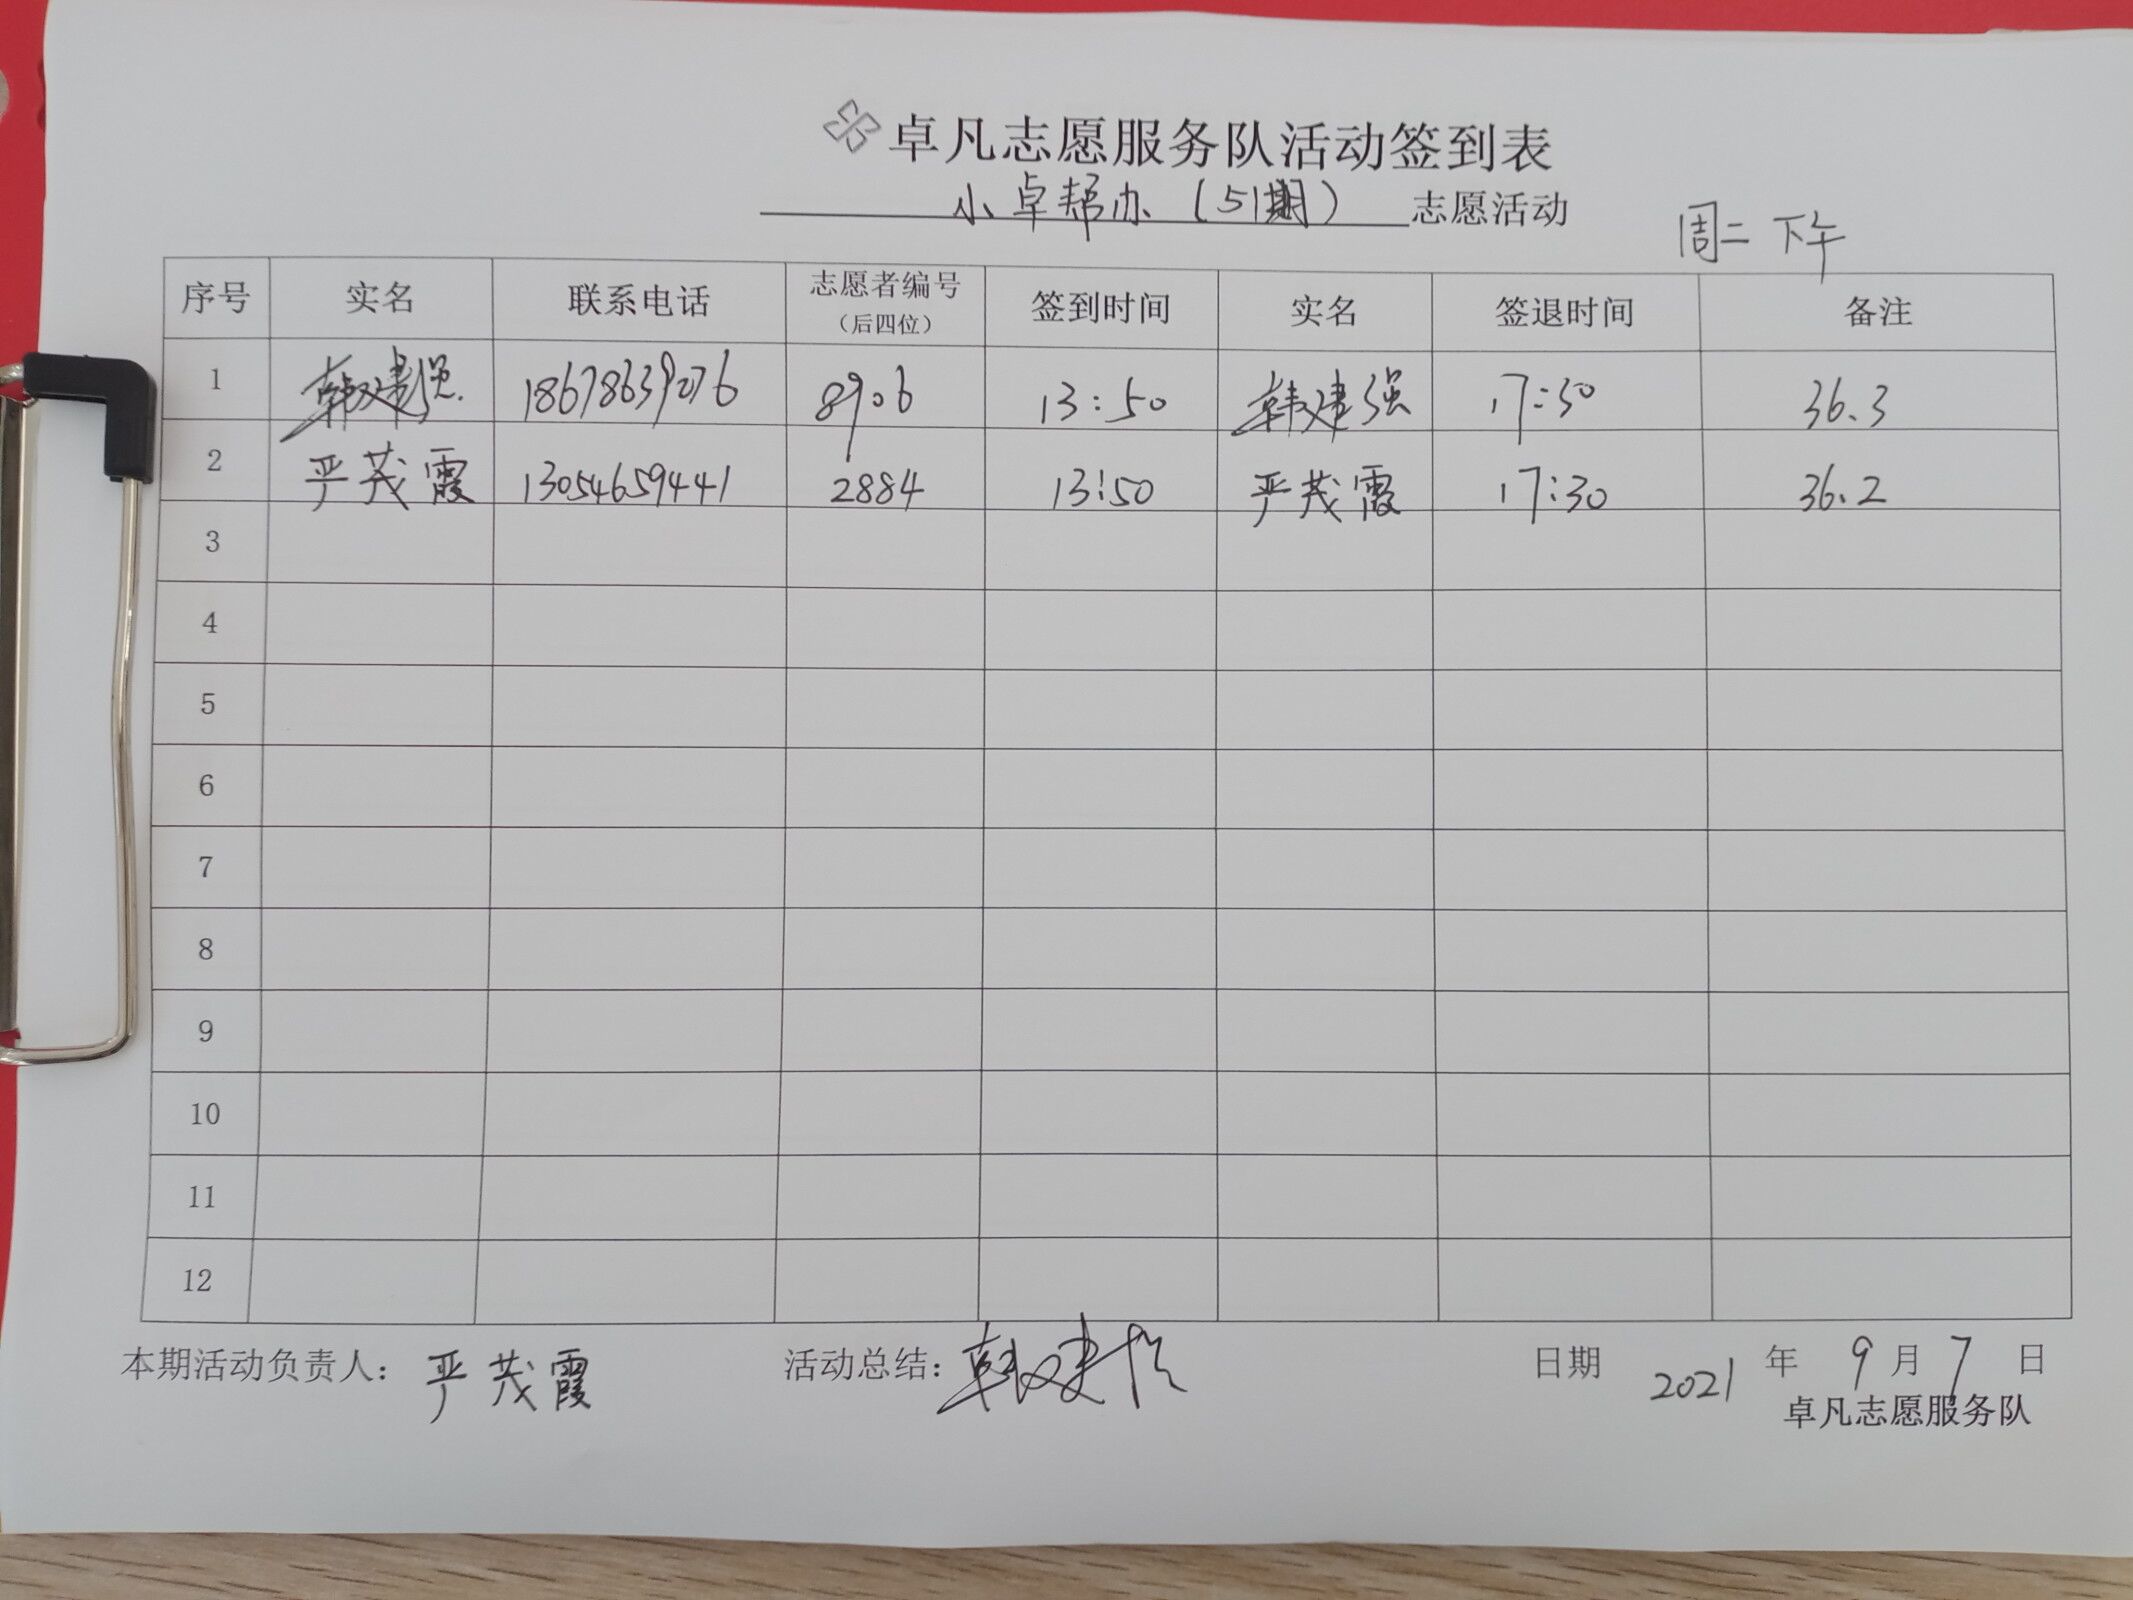 卓凡志愿服务队活动签到表
小卓帮办（51期）志愿活动
周二 下午
序号 实名 联系电话 志愿者编号（后四位） 签到时间 实名 签退时间 备注
1 韩建强 18678639076 8906 13:50 韩建强 17:30 36.3
2 严茂霞 13054659441 2884 13:50 严茂霞 17:30 36.2
3
4
5
6
7
8
9
10
11
12
本期活动负责人：严茂霞 活动总结：韩建强 日期 2021 年 9 月 7 日
卓凡志愿服务队